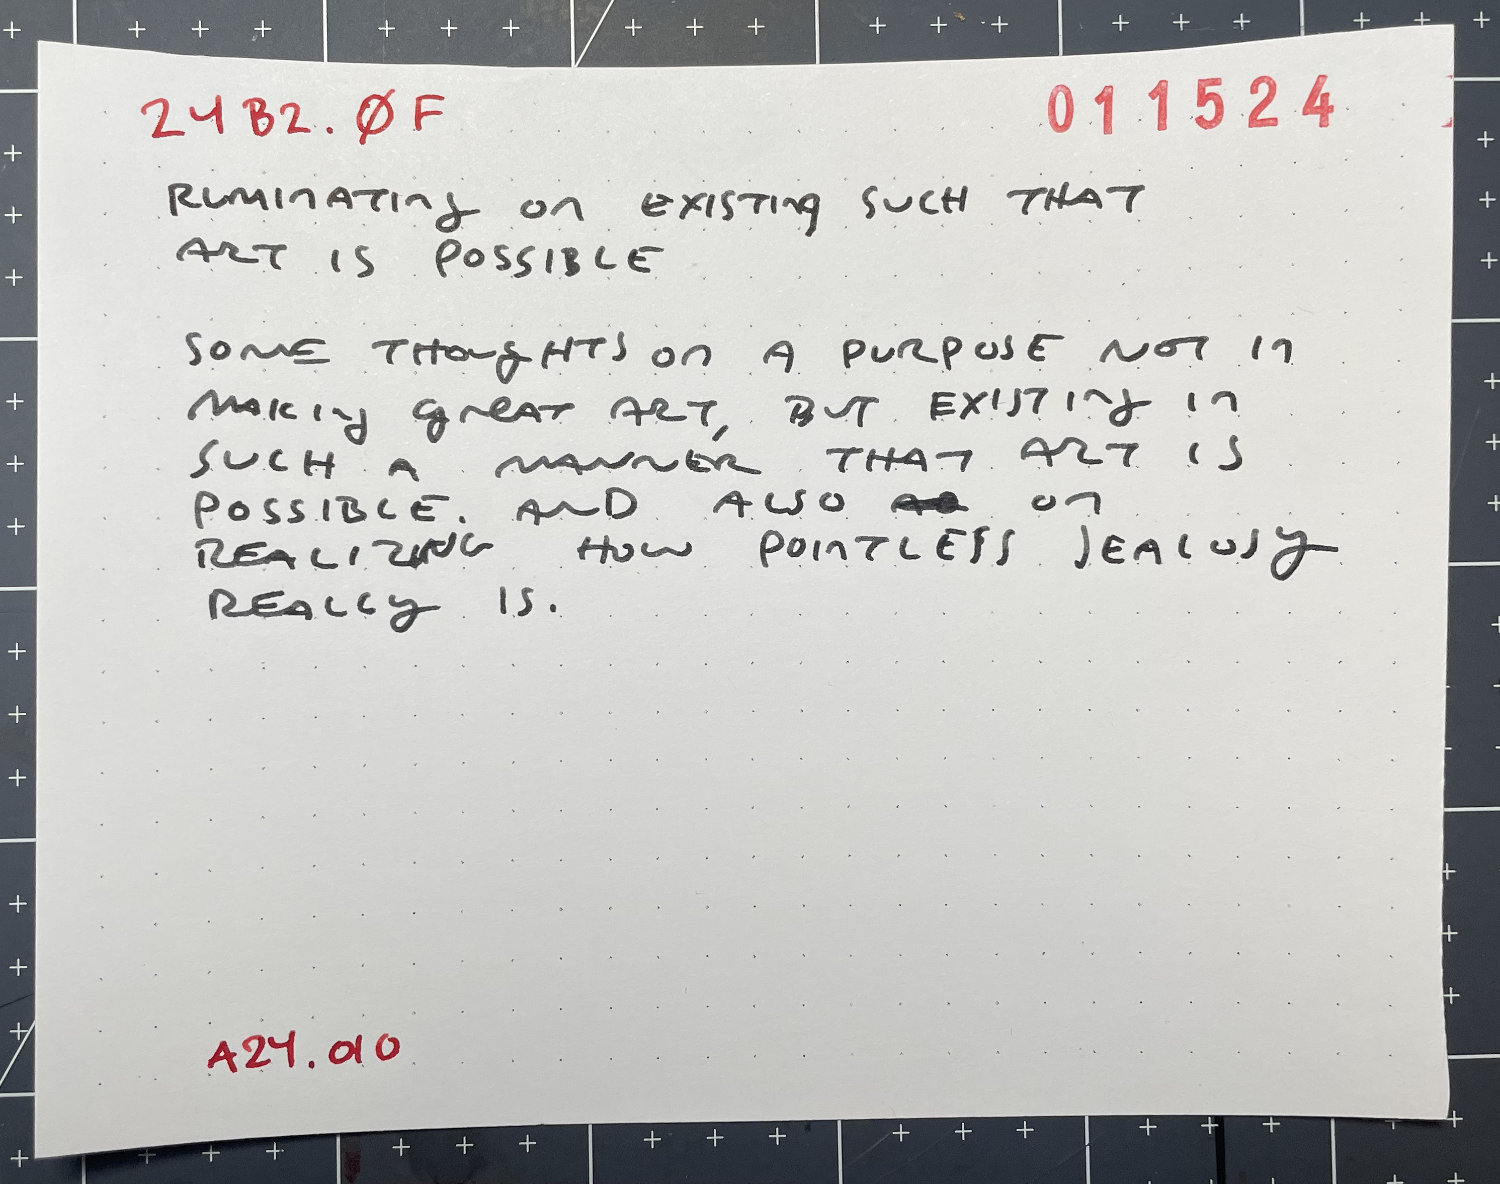 24B2.ØF
011524
RUMINATING ON EXISTING SUCH THAT
ART IS POSSIBLE
SOME THOUGHTS ON A PURPOSE NOT IN
MAKING GREAT ART, BUT EXISTING IN
SUCH A MANNER THAT ART IS
POSSIBLE. AND ALSO ON
REALIZING HOW POINTLESS JEALOUSY
REALLY IS.
A24.010